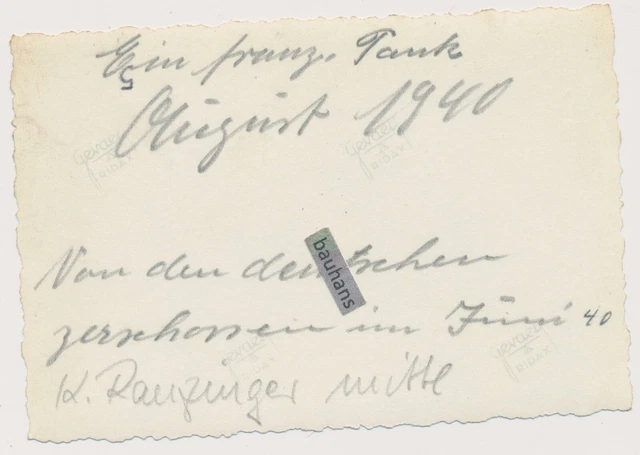 Ein franz. Tank
August 1940
Von den deutschen
zerschossen im Juni 40
K. Ranzinger mitte
bauhans
Gevaert
RIDAX
Gevaert
RIDAX
Gevaert
RIDAX
Gevaert
RIDAX